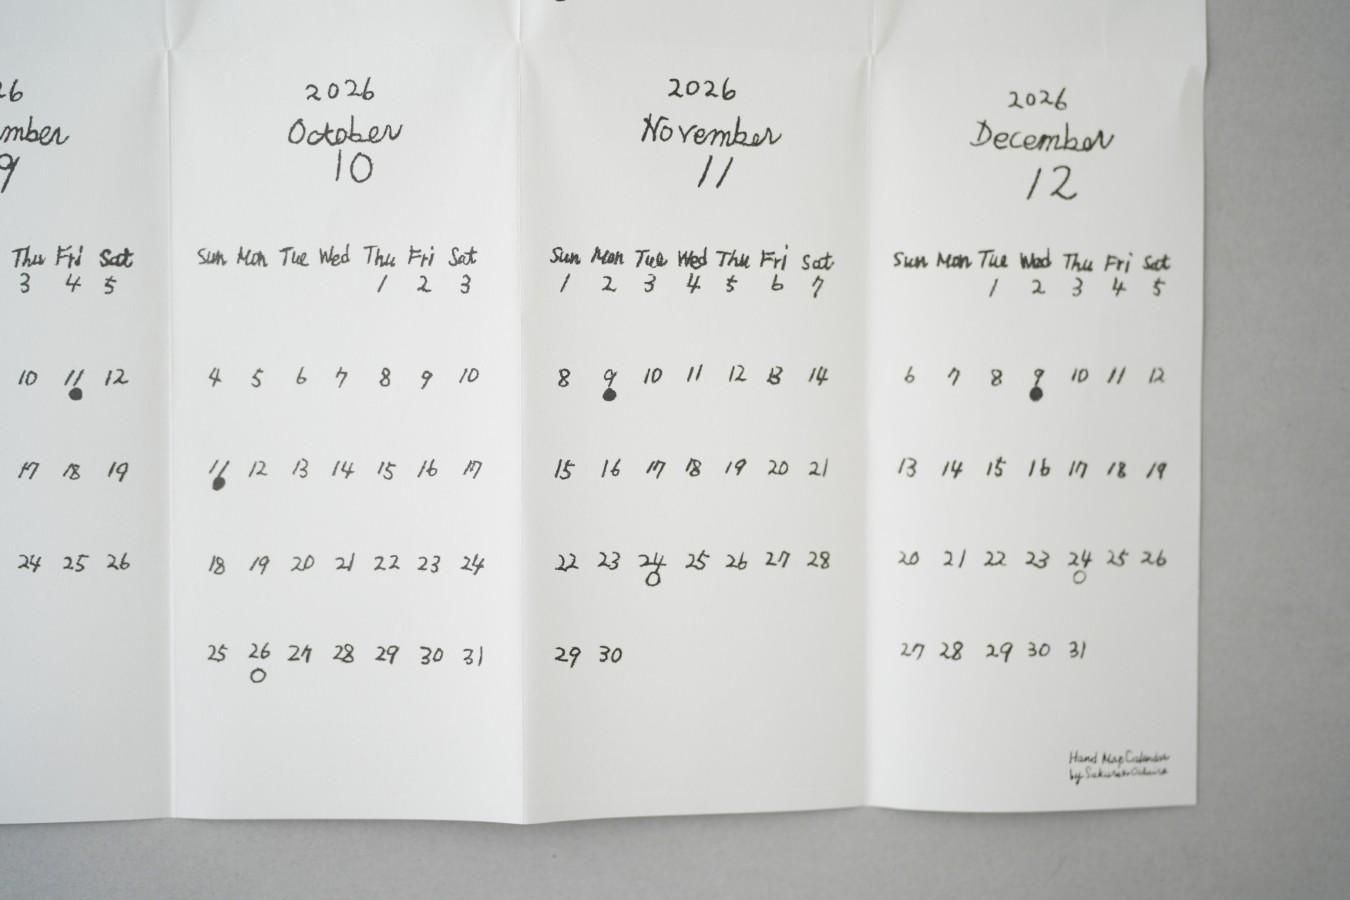 26
mber
9
Thu Fri Sat
3 4 5
10 11 12
17 18 19
24 25 26
2026
October
10
Sun Mon Tue Wed Thu Fri Sat
1 2 3
4 5 6 7 8 9 10
11 12 13 14 15 16 17
18 19 20 21 22 23 24
25 26 27 28 29 30 31
2026
November
11
Sun Mon Tue Wed Thu Fri Sat
1 2 3 4 5 6 7
8 9 10 11 12 13 14
15 16 17 18 19 20 21
22 23 24 25 26 27 28
29 30
2026
December
12
Sun Mon Tue Wed Thu Fri Sat
1 2 3 4 5
6 7 8 9 10 11 12
13 14 15 16 17 18 19
20 21 22 23 24 25 26
27 28 29 30 31
Hand Map Calendar
by